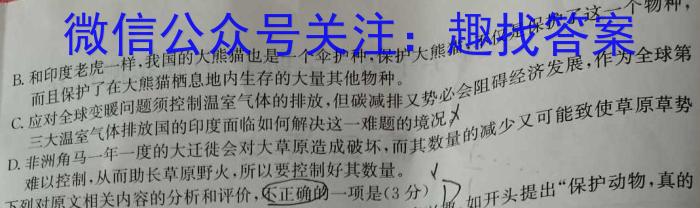 微信公众号关注：趣找答案
B. 和印度老虎一样,我国的大熊猫也是一个伞护种,保护大熊猫不仅是保护了这一个物种,
而且保护了在大熊猫栖息地内生存的大量其他物种。
C. 应对全球变暖问题须控制温室气体的排放,但碳减排又势必会阻碍经济发展,作为全球第
三大温室气体排放国的印度面临如何解决这一难题的境况。
D. 非洲角马一年一度的大迁徙会对大草原造成破坏,而其数量的减少又可能致使草原草势
难以控制,从而助长草原野火,所以要控制好其数量。
下列对原文相关内容的分析和评价,不正确的一项是(3分) D
如开头提出“保护动物,真的